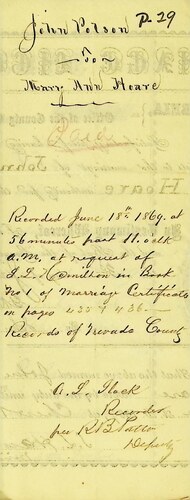 P-29
John Potson
to
Mary Ann Hoare
Recorded June 18th 1869, at
56 minutes past 11 o'clk
A.M. at request of
in Book
No 1 of Marriage Certificates
on pages 435 & 436
Records of Nevada County
Recorder
per
Deputy